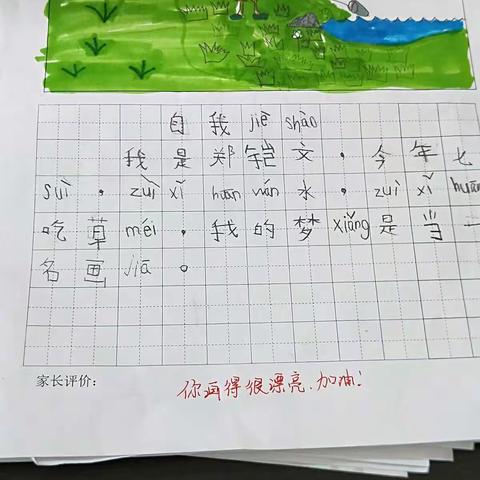 自我 jiè shào
我是郑铠文。今年七
suì。zuì xǐ huān wán 水。zuì xǐ huān
吃草 méi。我的梦 xiǎng 是当一
名画 jiā。
家长评价:
你画得很漂亮.加油!